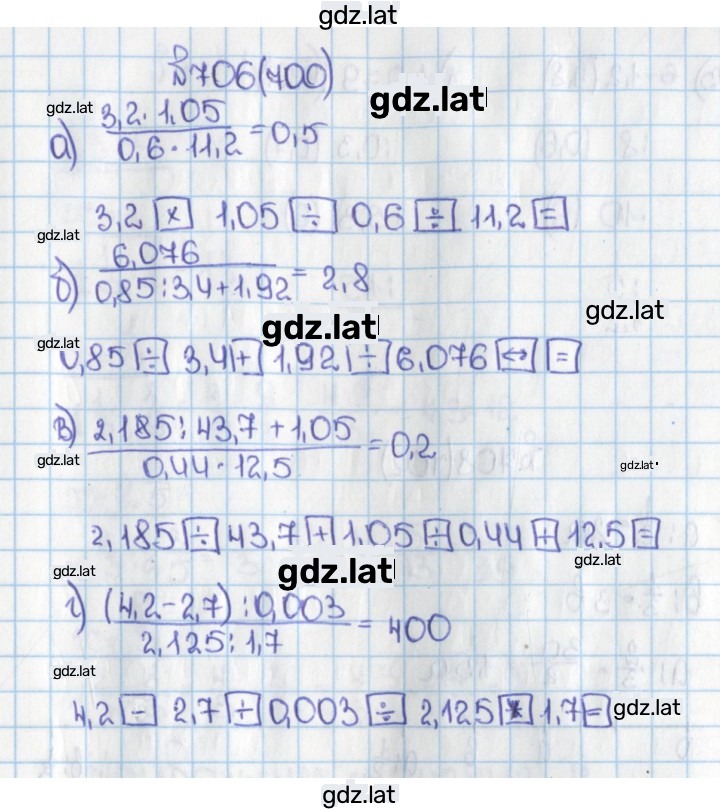 gdz.lat
№706(700)
gdz.lat
gdz.lat
а) 3,2 · 1,05
0,6 · 11,2 = 0,5
3,2 [×] 1,05 [÷] 0,6 [÷] 11,2 [=]
gdz.lat
б) 6,076
0,85:3,4+1,92 = 2,8
gdz.lat
gdz.lat
gdz.lat
0,85 [÷] 3,4 [+] 1,92 [÷] 6,076 [↔] [=]
в) 2,185:43,7 + 1,05
0,44 · 12,5 = 0,2
gdz.lat
gdz.lat
2,185 [÷] 43,7 [+] 1.05 [÷] 0,44 [÷] 12,5 [=]
gdz.lat
gdz.lat
gdz.lat
г) (4,2-2,7):0,003
2,125:1,7 = 400
gdz.lat
4,2 [-] 2,7 [÷] 0,003 [÷] 2,125 [×] 1,7 [=]
gdz.lat
gdz.lat